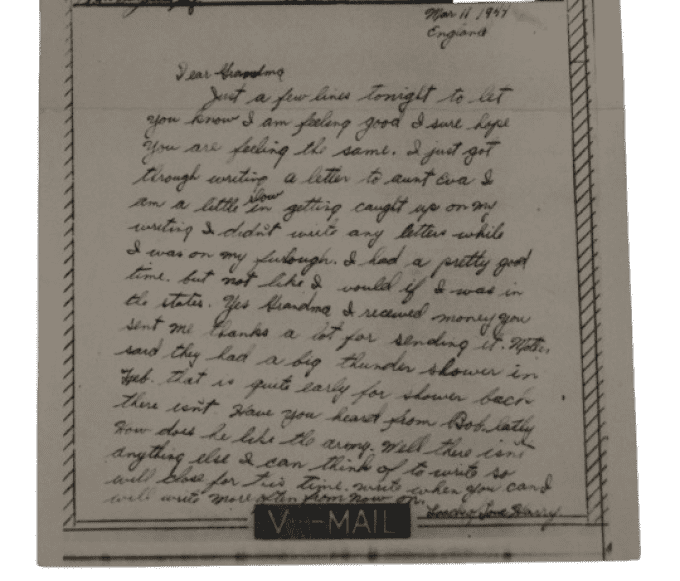 Mar 11 1957
England
Dear Grandma
Just a few lines tonight to let
you know I am feeling good I sure hope
you are feeling the same. I just got
through writing a letter to aunt Eva I
am a little slow in getting caught up on my
writing I didn't write any letters while
I was on my furlough. I had a pretty good
time. but not like I would if I was in
the states. Yes Grandma I received money you
sent me thanks a lot for sending it.
said they had a big thunder shower in
Feb. that is quite early for shower back
there isnt. Have you heard from Bob latly
How does he like the army. Well there isnt
anything else I can think of to write so
will close for this time. write when you can I
will write more often from now on.
Love Harry
V-MAIL